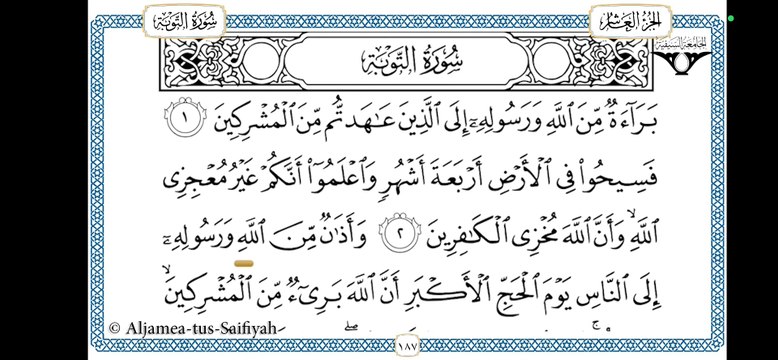 سُورَةُ التَّوْبَة
الجُزْءُ العَاشِر
الجامعة السيفية
سُورَةُ التَّوْبَة
بَرَآءَةٌ مِّنَ اللَّهِ وَرَسُولِهِۦٓ إِلَى الَّذِينَ عَٰهَدتُّم مِّنَ الْمُشْرِكِينَ ١
فَسِيحُوا۟ فِى الْأَرْضِ أَرْبَعَةَ أَشْهُرٍ وَاعْلَمُوٓا۟ أَنَّكُمْ غَيْرُ مُعْجِزِى
اللَّهِ ۙ وَأَنَّ اللَّهَ مُخْزِى الْكَٰفِرِينَ ٢ وَأَذَٰنٌ مِّنَ اللَّهِ وَرَسُولِهِۦٓ
إِلَى النَّاسِ يَوْمَ الْحَجِّ الْأَكْبَرِ أَنَّ اللَّهَ بَرِىٓءٌ مِّنَ الْمُشْرِكِينَ ۙ
© Aljamea-tus-Saifiyah
١٨٧